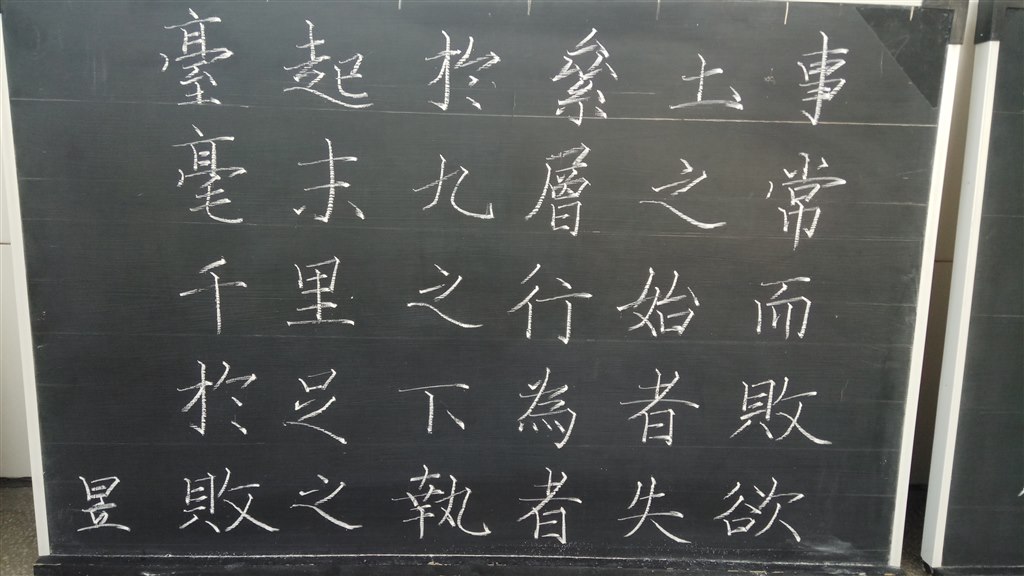 臺起於絫土事
毫末九層之常
千里之行始而
於足下為者敗
敗之執者失欲
昱